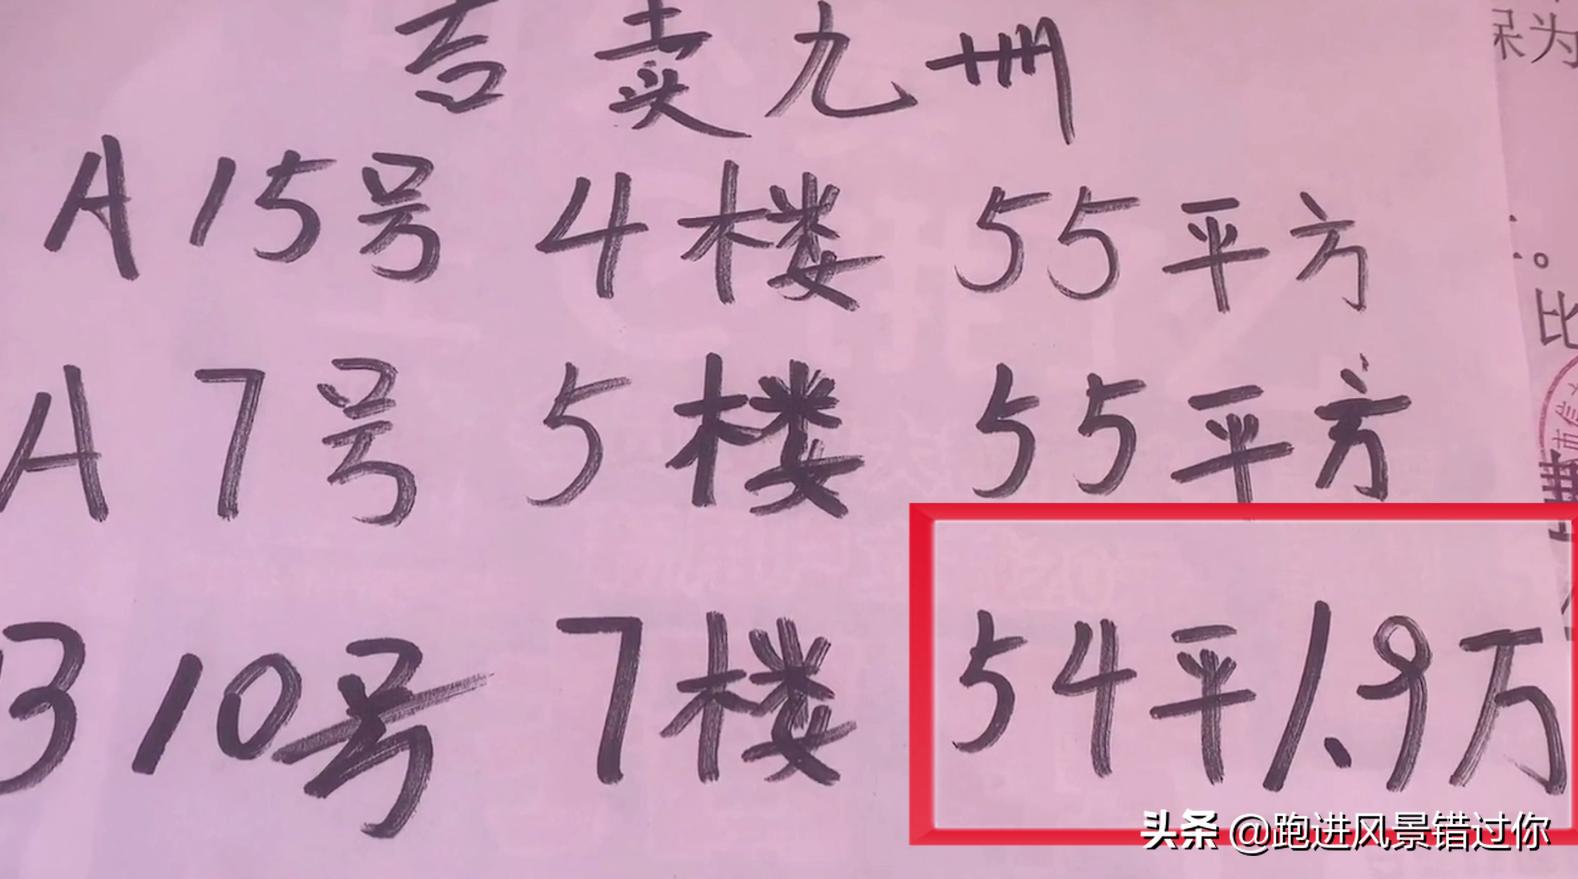 吉卖九州
A 15号 4楼 55平方
A 7号 5楼 55平方
B 10号 7楼 54平 1.9万
保为
。
比
头条 @跑进风景错过你